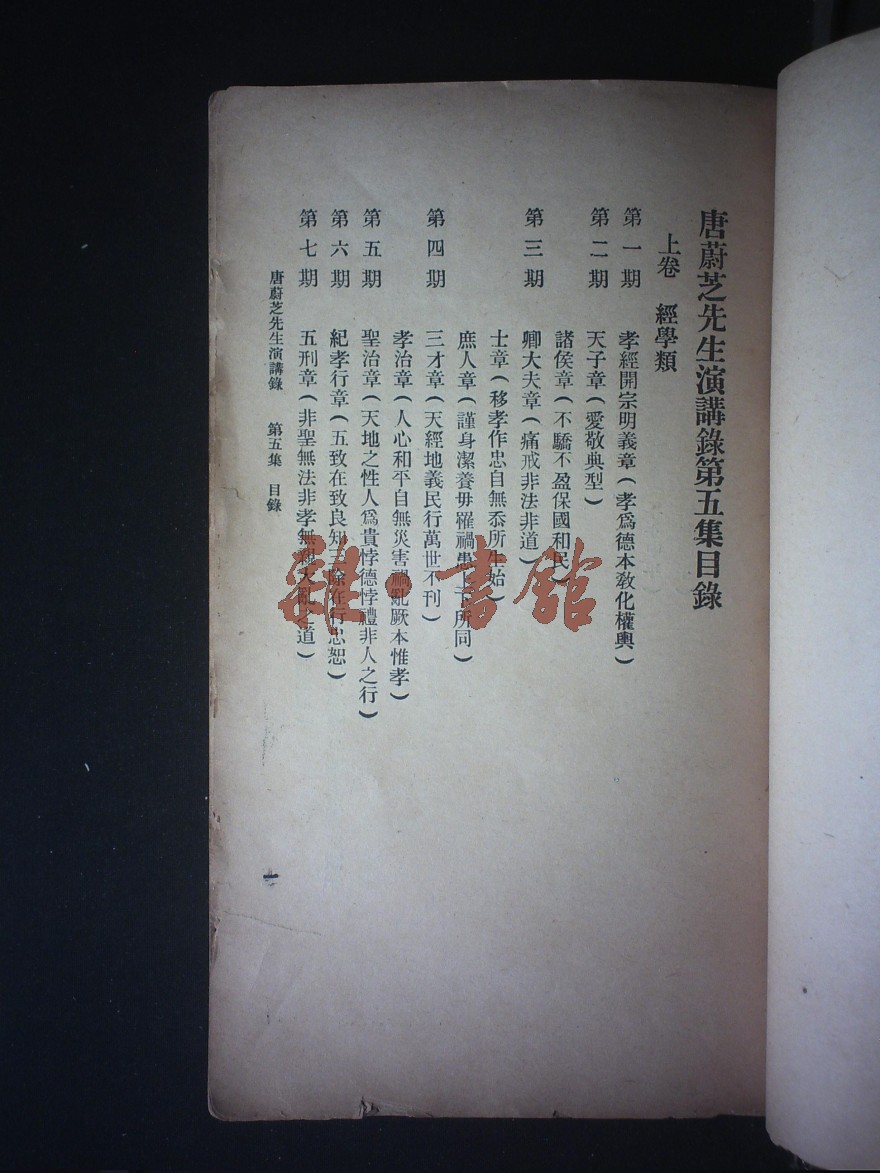 唐蔚芝先生演講錄第五集目錄
上卷　經學類
第一期　孝經開宗明義章(孝爲德本敎化權輿)
第二期　天子章(愛敬典型)
諸侯章(不驕不盈保國和民)
第三期　卿大夫章(痛戒非法非道)
士章(移孝作忠自無忝所生始)
庶人章(謹身潔養毋罹禍患 所同)
第四期　三才章(天經地義民行萬世不刊)
孝治章(人心和平自無災害禍亂厥本惟孝)
第五期　聖治章(天地之性人爲貴悖德悖禮非人之行)
第六期　紀孝行章(五致在致良知三除在行忠恕)
第七期　五刑章(非聖無法非孝無親大亂之道)
唐蔚芝先生演講錄　第五集　目錄
一
雜·書館